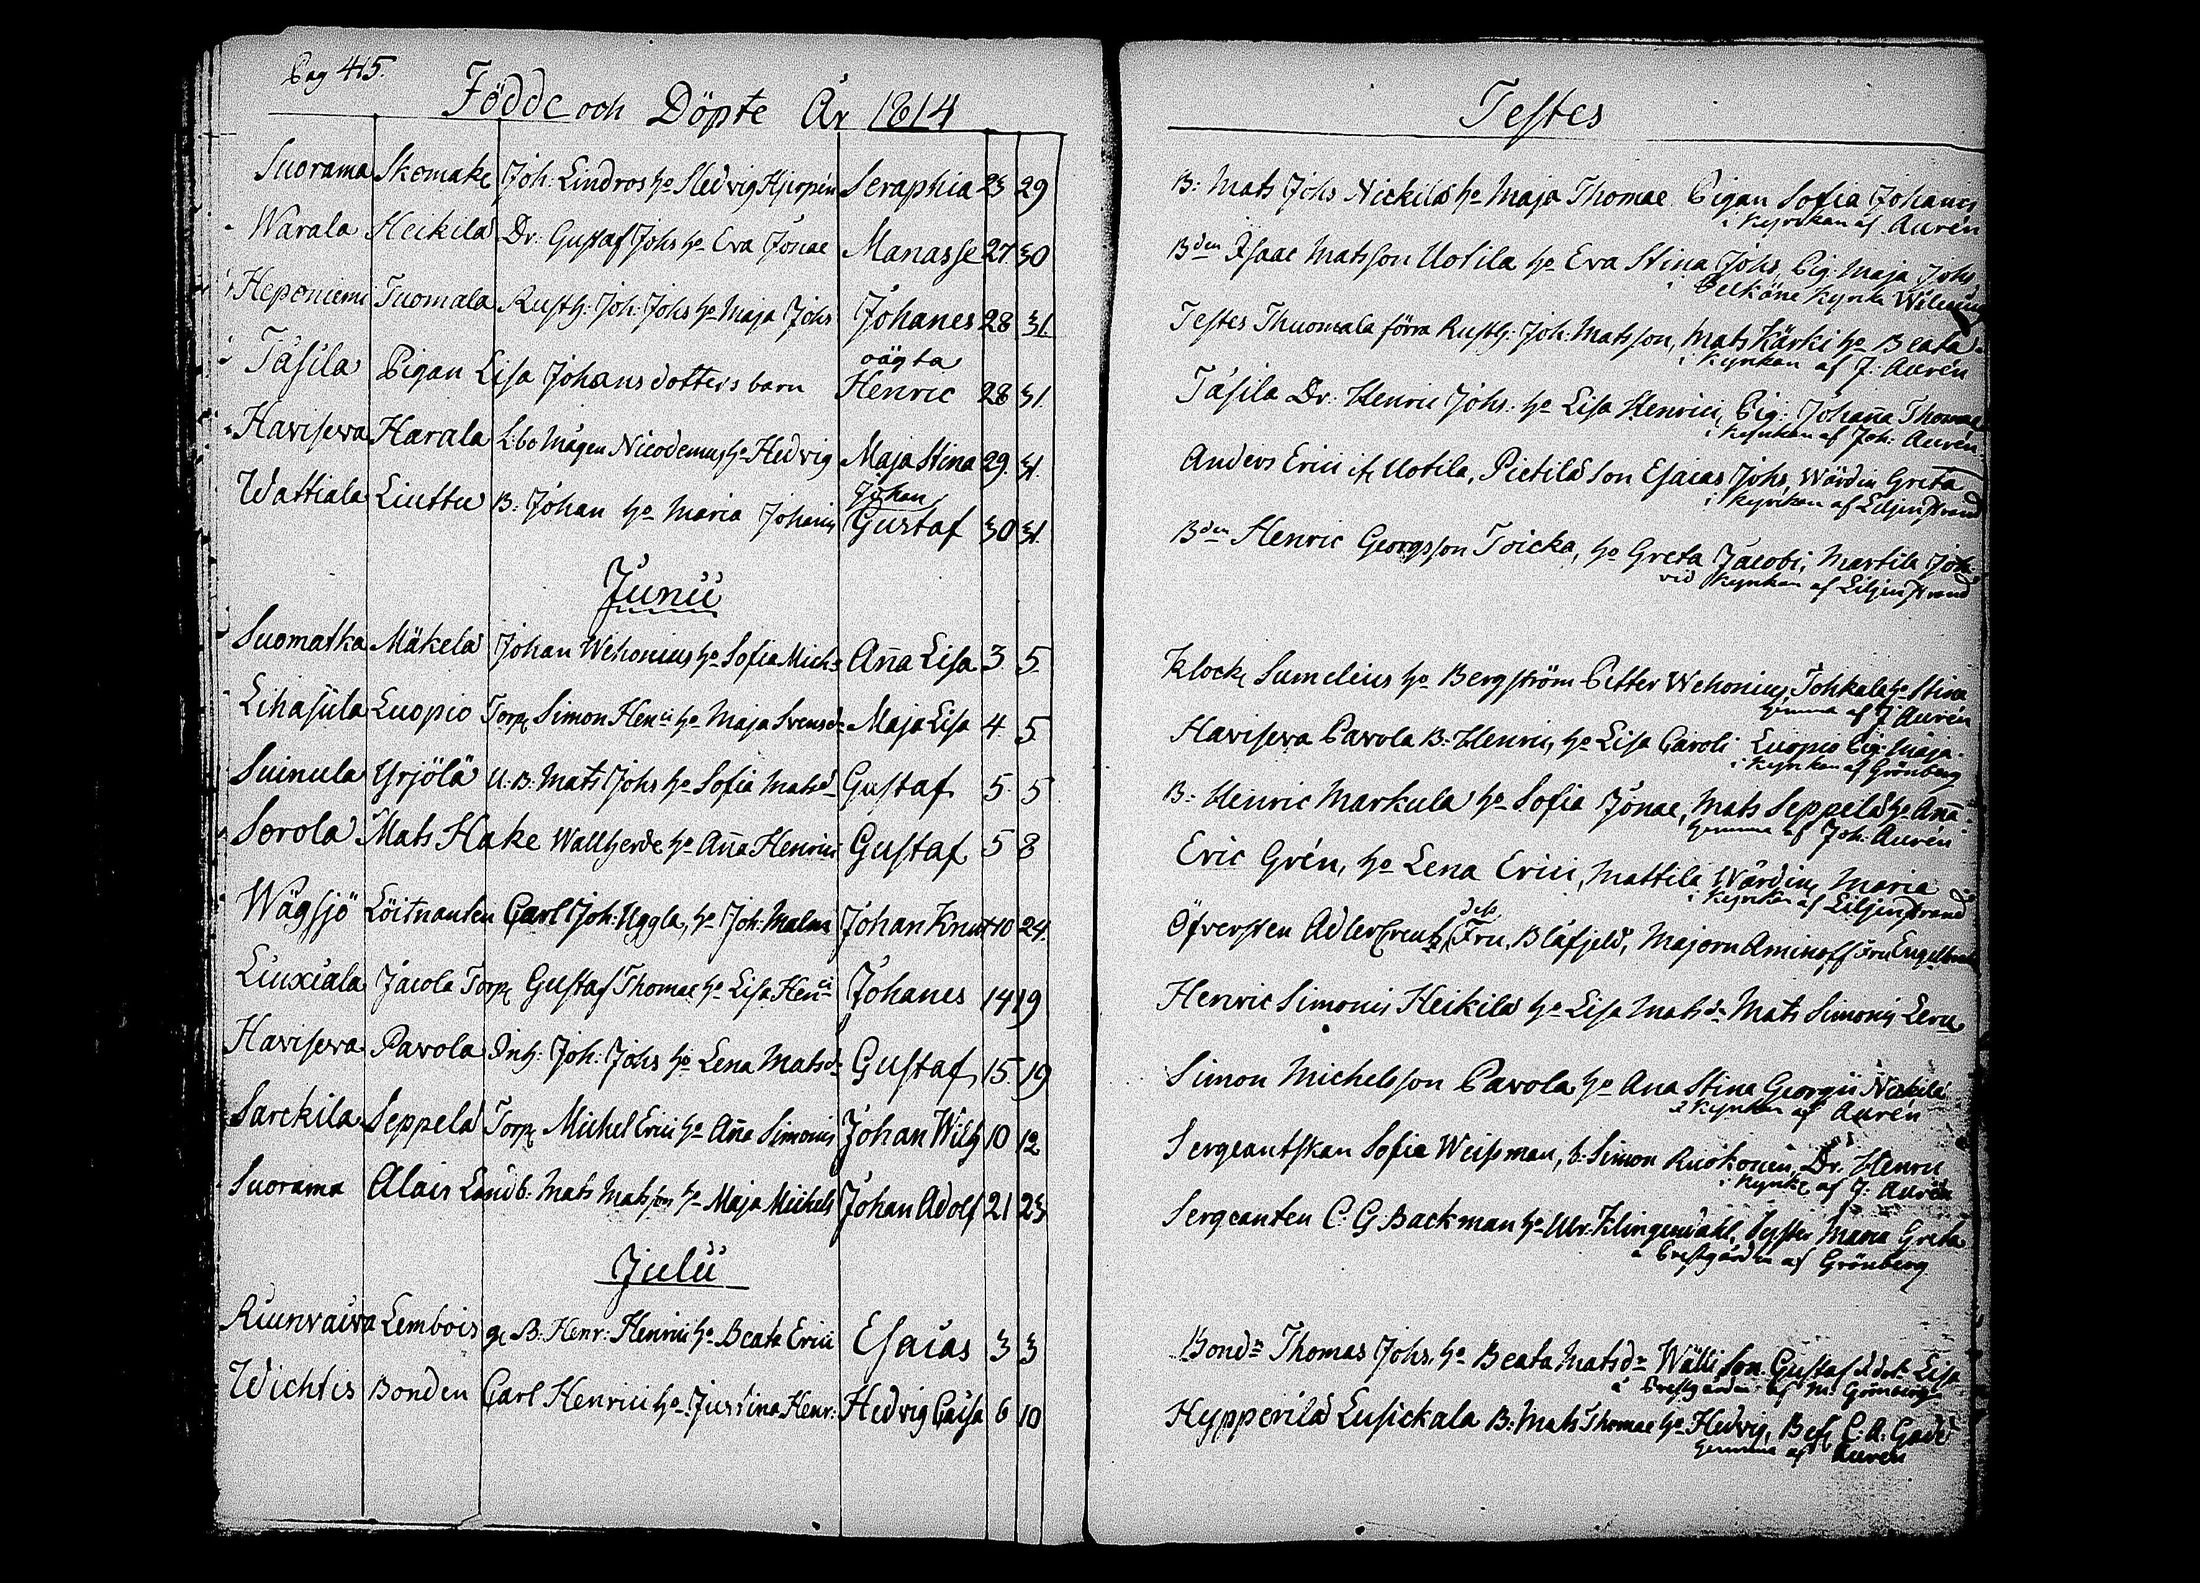 Pag 415.
Födde och Döpte År 1814
Suorama Skomak Joh: Lindros ho Hedvig Hjerpén Seraphia 23 29
Warala Heikilä Dr: Gustaf Johs ho Eva Jonae Manasse 27 30
Heponiemi Tuomala Rusth: Joh: Johs ho Maja Johs Johanes 28 31.
Tåsila Pigan Lisa Johans dotters barn oägta Henric 28 31.
Havisewa Harala L:bo Mågen Nicodemus ho Hedvig Maja Stina 29. 31.
Wattiala Liuttu B: Johan ho Maria Johanis Johan Gustaf 30 31.
Junii
Suomatka Mäkelä Johan Wehonius ho Sofia Mich: Ana Lisa 3 5.
Lihasula Luopio Torp Simon Henci ho Maja Svensd: Maja Lisa 4 5
Suinula Yrjölä U: B: Mats Johs ho Sofia Matsd Gustaf 5. 5
Sorola Mats Hake Wallherde ho Ana Henrici Gustaf 5 8
Wägsjö Löitnanten Carl Joh: Uggla, ho Joh: Malm Johan Knut 10 24.
Liuxiala Jacola Torp Gustaf Thomae ho Lisa Henci Johanes 14 19
Havisewa Pavola Inh: Joh: Johs ho Lena Matsd: Gustaf 15. 19
Sarckila Seppelä Torp Michel Erici ho Ana Simonis Johan Wilh 10 12
Suorama Alais Landb: Mats Matsson ho Maja Michels Johan Adolf 21 23
Julii
Ruunvaiva Lembois B: Henr: Henrici ho Beata Erici Esaias 3 3
Wichtis Bonden Carl Henrici ho Justina Henr: Hedvig Caisa 6 10
Testes
B: Mats Johs Nickilä ho Maja Thomae Pigan Sofia Johanis
i Kyrckan af Aurén
Bden Isaac Matsson Uotila ho Eva Stina Johs, Pig: Maja Johs
i Pelkäne Kyrk
Testes Thuomala förra Rusth: Joh: Matsson, Mats Kärki ho Beata
i Kyrkan af J: Aurén
Tåsila Dr: Henric Johs: ho Lisa Henrici, Pig: Johaña Thomae
i Kyrkan af Joh: Aurén
Anders Erici Uotila, Pietilä Son Esaias Johs, Wärdin Greta
i Kyrkan af Liljenstrand
Bden Henric Georgsson Toicka, ho Greta Jacobi, Martila Joh:
vid Kyrkan af Liljenstrand
Klock Sumelius ho Bergström Petter Wehonius, Tohkala ho Stina
hemma af J Aurén
Havisewa Pavola B: Henrici, ho Lisa Caroli Luopio Pig: Maja
i Kyrkan af Grönberg
B: Henric Markula ho Sofia Jonae, Mats Seppelä ho Ana
hemma af Joh: Aurén
Eric Grén, ho Lena Erici, Mattila Wärdin Maria
i Kyrkan af Liljenstrand
Öfversten AdlerCreutz, des Fru, Blåfjeld, Majorn Aminoff Fru
Henric Simonis Heikilä ho Lisa Matsd: Mats Simonis
Simon Michelsson Pavola ho Ana Stina Georgii Nickilä
i Kyrkan af Aurén
Sergeantskan Sofia Weisman, b: Simon Ruokonen, Dr. Henric
i Kyrk af J: Aurén
Sergeanten C. G. Backman ho Ulr: Klingendahl, Syster Maria Greta
a Prestgården af Grönberg
Bonds Thomas Johs, ho Beata Matsd: Wälli Son Gustaf d dot: Lisa
å Prestgården af M: Grönberg
Hypperilä Lusickala B: Mats Thomae ho Hedvig, Bef C: A: Gadd
hemma af Aurén